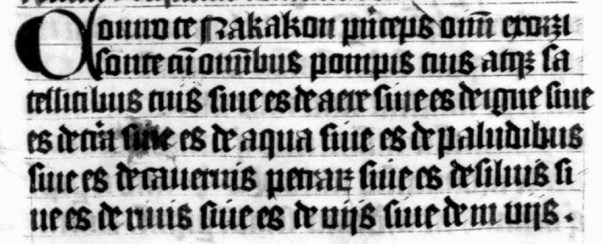 Conuro te Rakakon pͥnceps om̄ exorzi
sonte cū om̄ibus pompis tuis atqꝫ sa
tellitibus tuis siue es de aere siue es de igne siue
es de tr̄a siue es de aqua siue es de paludibus
siue es de cauernis petraꝝ siue es de siluis si
ue es de riuis siue es de vijs siue de in vijs.